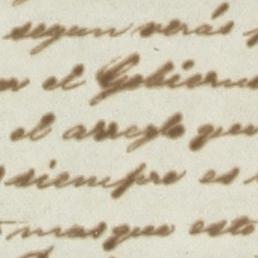 segun verás
el Gobierno
el arreglo que
siempre es
mas que esto